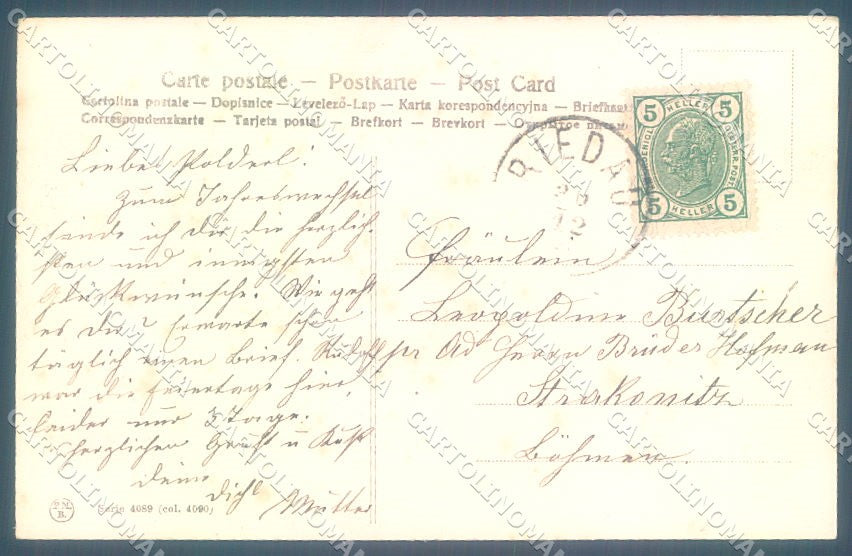 Carte postale — Postkarte — Post Card
Cartolina postale — Dopisnice — Levelező-Lap — Karta korespondencyjna — Briefkaart
Correspondenzkarte — Tarjeta postal — Brefkort — Brevkort — Открытое письмо
5 HELLER 5
5 HELLER 5
RIEDAU
Liebe Polderl!
Zum Jahreswechsel
sende ich Dir die herzlich-
sten und innigsten
Glückwünsche. Wie geht
es Dir? Erwarte schon
täglich einen Brief. Rudolf
war die Feiertage hier,
leider nur 3 Tage.
Herzlichen Gruß u Kuß
Deine
Dich
Mutter
Fräulein
Leopoldine Burtscher
pr Ad Herrn Brüder Hofman
Strakonitz
Böhmen.
P.M.
B.
Serie 4089 (col. 4090)
CARTOLINOMANIA